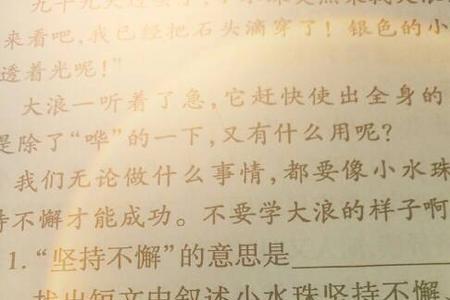 来看吧,我已经把石头滴穿了！银色的小
透着光呢！”
大浪一听着了急,它赶快使出全身的
是除了“哗”的一下,又有什么用呢？
我们无论做什么事情,都要像小水珠
持不懈才能成功。不要学大浪的样子啊
1.“坚持不懈”的意思是
找出短文中叙述小水珠坚持不懈、